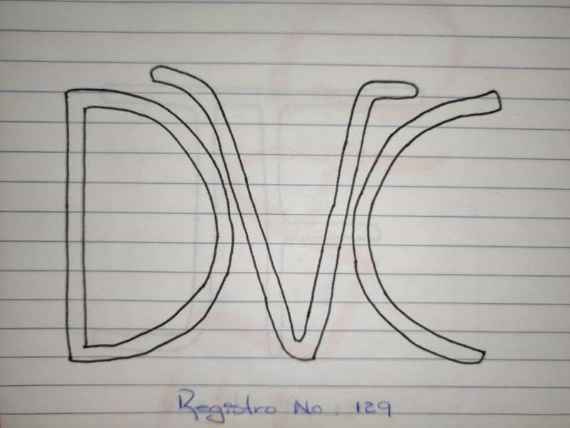 DVC
Registro No. 129